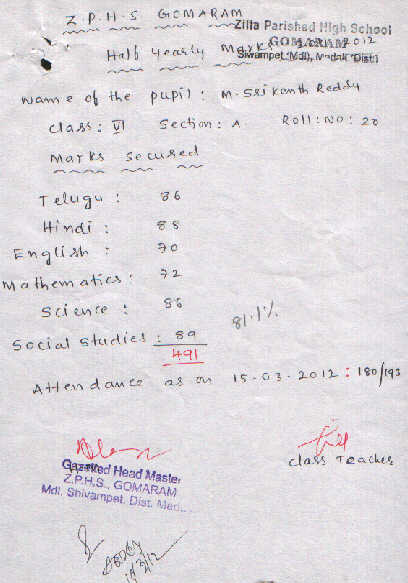 Z.P.H.S GOMARAM
Zilla Parishad High School
GOMARAM
Half yearly Marks 2012
Siwampet (Mdl), Medak (Dist)
Name of the pupil: M. Srikanth Reddy
Class: VI Section: A Roll: No: 20
Marks Secured
Telugu : 86
Hindi : 88
English : 70
Mathematics : 72
Science : 86
81.1%
Social Studies : 89
491
Attendance as on 15-03-2012 : 180/193
Gazetted Head Master
Z.P.H.S., GOMARAM
Mdl, Shivampet, Dist.
Class Teacher